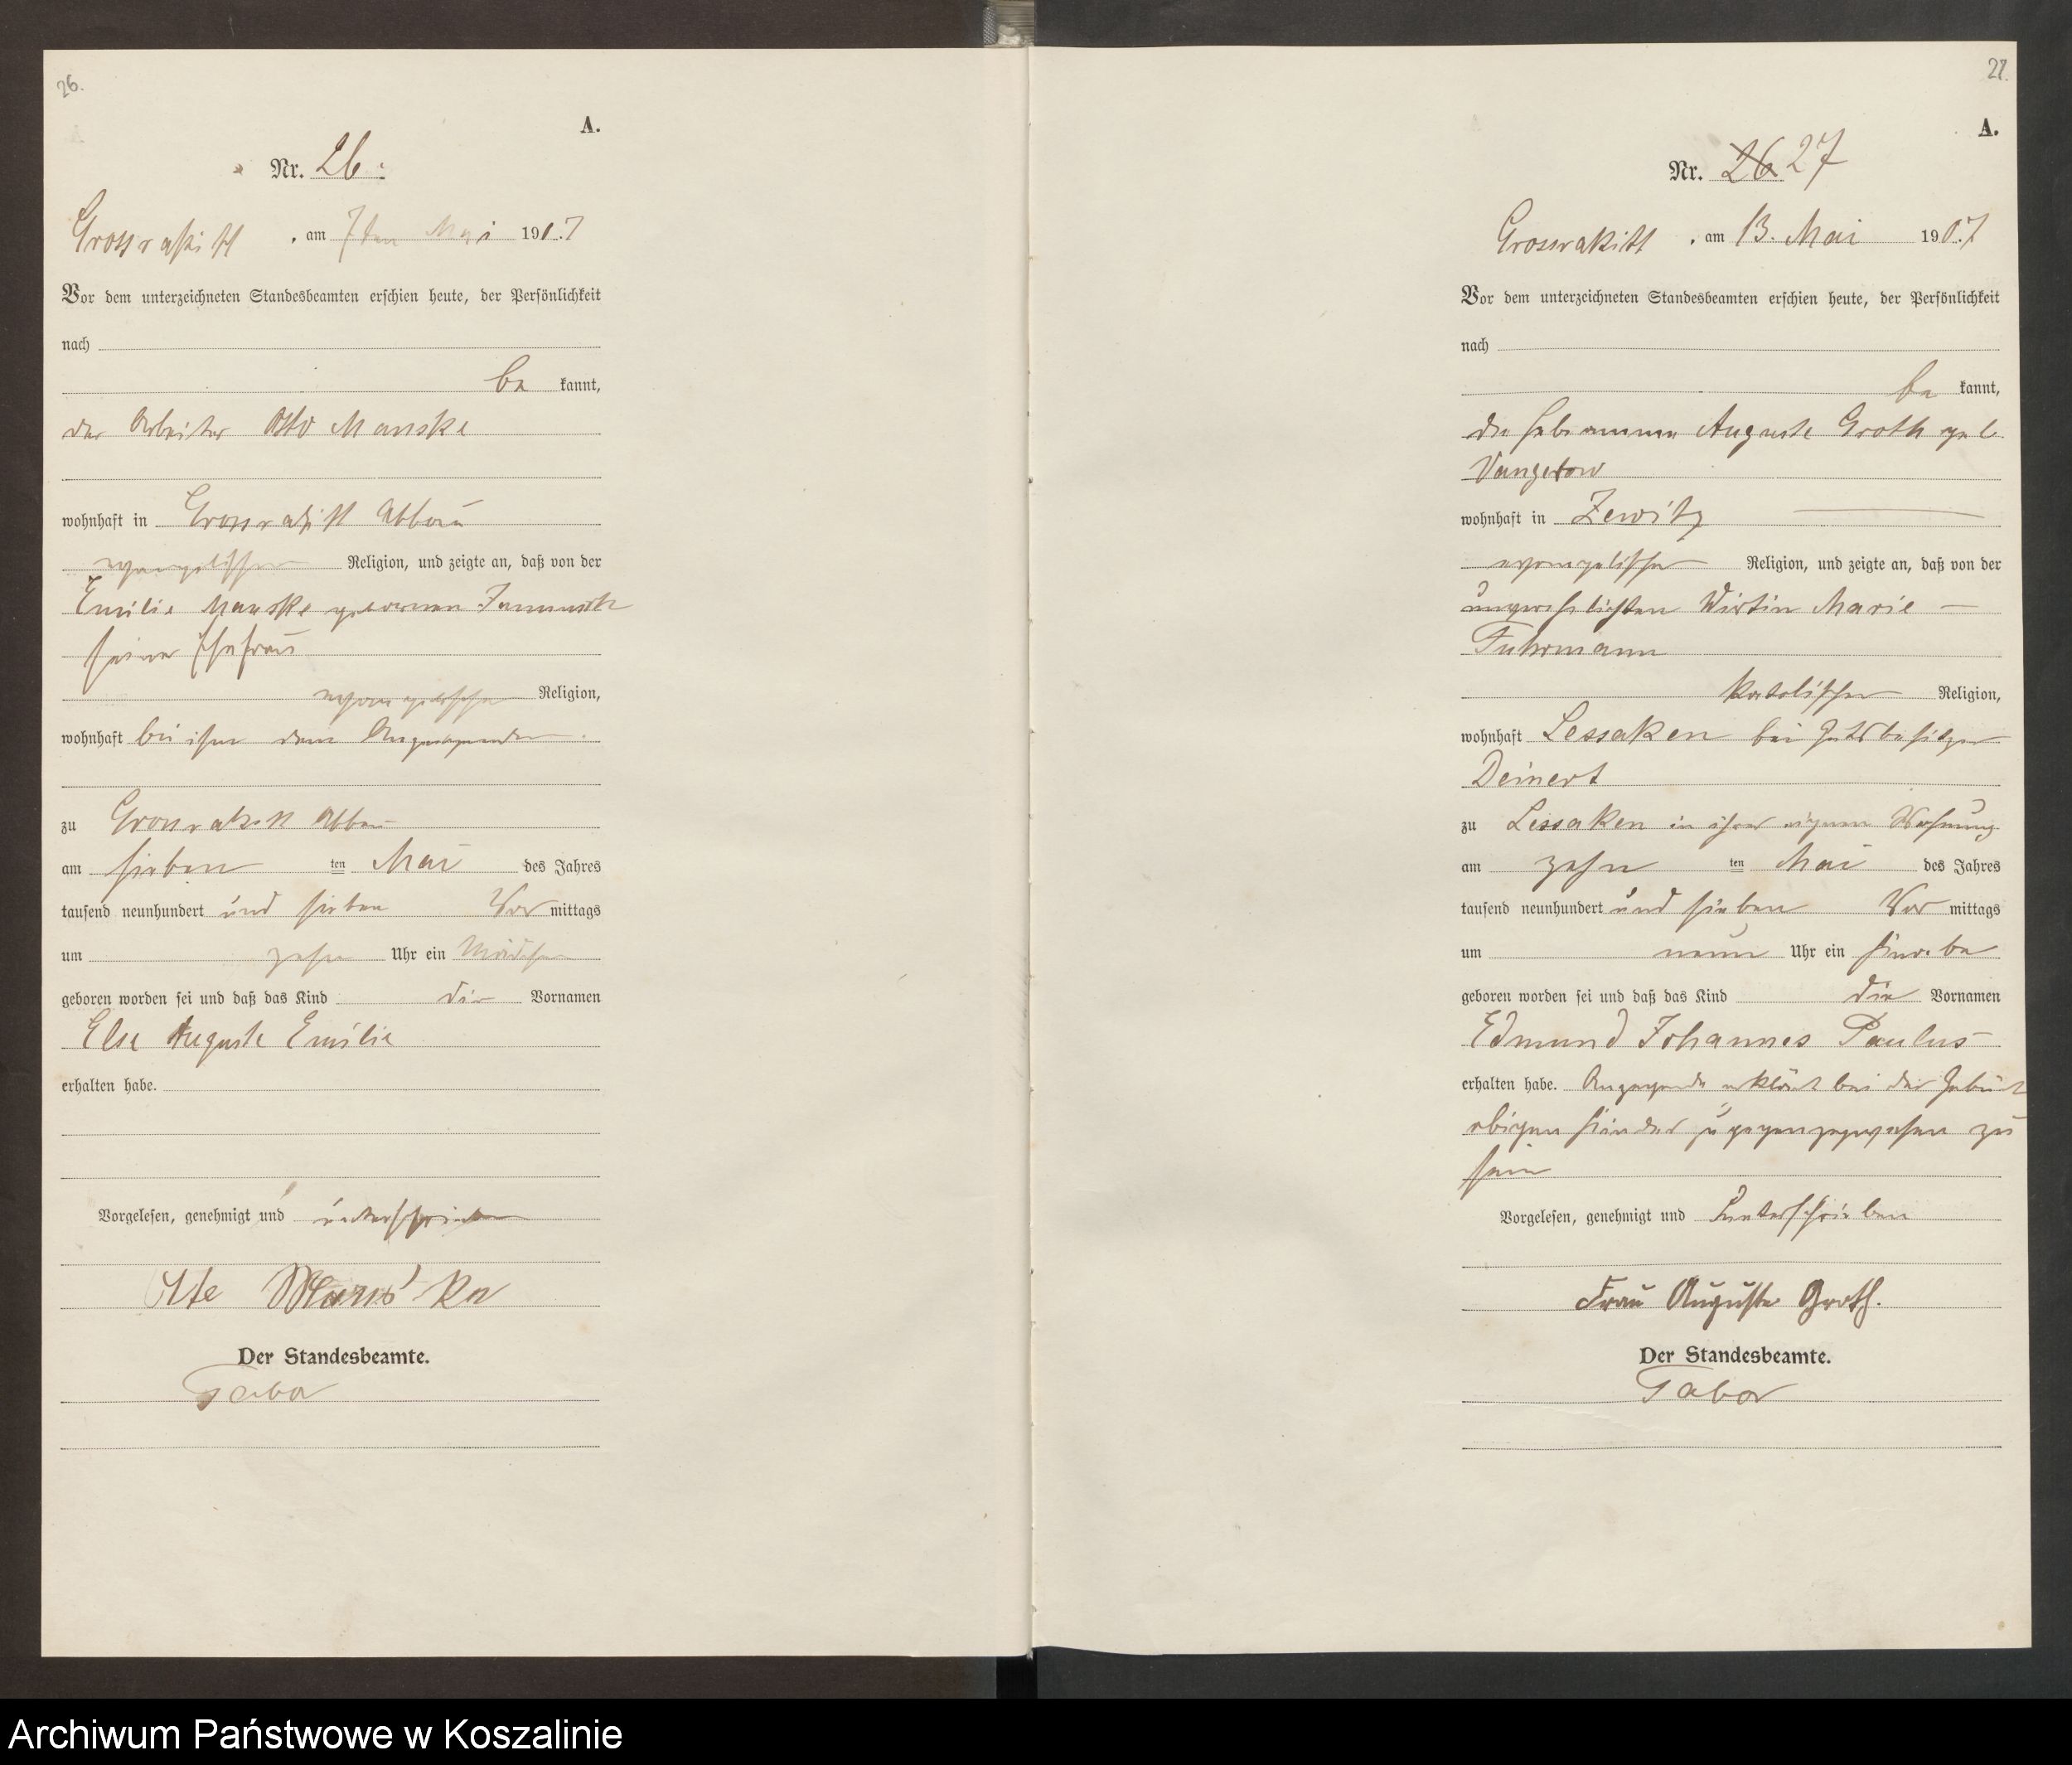 26.
A.
Nr. 26.
Grossrakitt, am 7ten Mai 1907
Vor dem unterzeichneten Standesbeamten erschien heute, der Persönlichkeit
nach
be kannt,
der Arbeiter Otto Manske
wohnhaft in Grossrakitt Abbau
evangelischer Religion, und zeigte an, daß von der
Emilie Manske geborenen
seiner Ehefrau
evangelischer Religion,
wohnhaft bei ihm dem Anzeigenden
zu Grossrakitt Abbau
am sieben ten Mai des Jahres
tausend neunhundert und sieben Vor mittags
um zehn Uhr ein Mädchen
geboren worden sei und daß das Kind die Vornamen
Else Auguste Emilie
erhalten habe.
Vorgelesen, genehmigt und unterschrieben
Manske
Der Standesbeamte.
Tabor
27.
A.
Nr. 26 27
Grossrakitt, am 13. Mai 1907
Vor dem unterzeichneten Standesbeamten erschien heute, der Persönlichkeit
nach
be kannt,
die Hebamme Auguste Groth geb.
Vangerow
wohnhaft in Zewitz
evangelischer Religion, und zeigte an, daß von der
unverehelichten Wirtin Marie
Fuhrmann
katolischer Religion,
wohnhaft Lessaken bei Gutsbesitzer
Deinert
zu Lessaken in ihrer eigenen Wohnung
am zehn ten Mai des Jahres
tausend neunhundert und sieben Vor mittags
um neun Uhr ein Knabe
geboren worden sei und daß das Kind die Vornamen
Edmund Johannes Paulus
erhalten habe. Anzeigende erklärt bei der Geburt
obigen Kindes zugegen gewesen zu
sein
Vorgelesen, genehmigt und unterschrieben
Frau Auguste Groth.
Der Standesbeamte.
Tabor
Archiwum Państwowe w Koszalinie